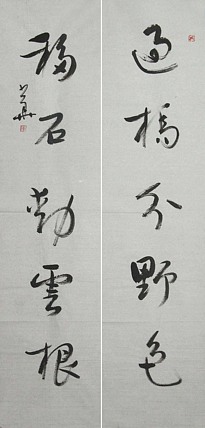 過橋分野色
移石動雲根